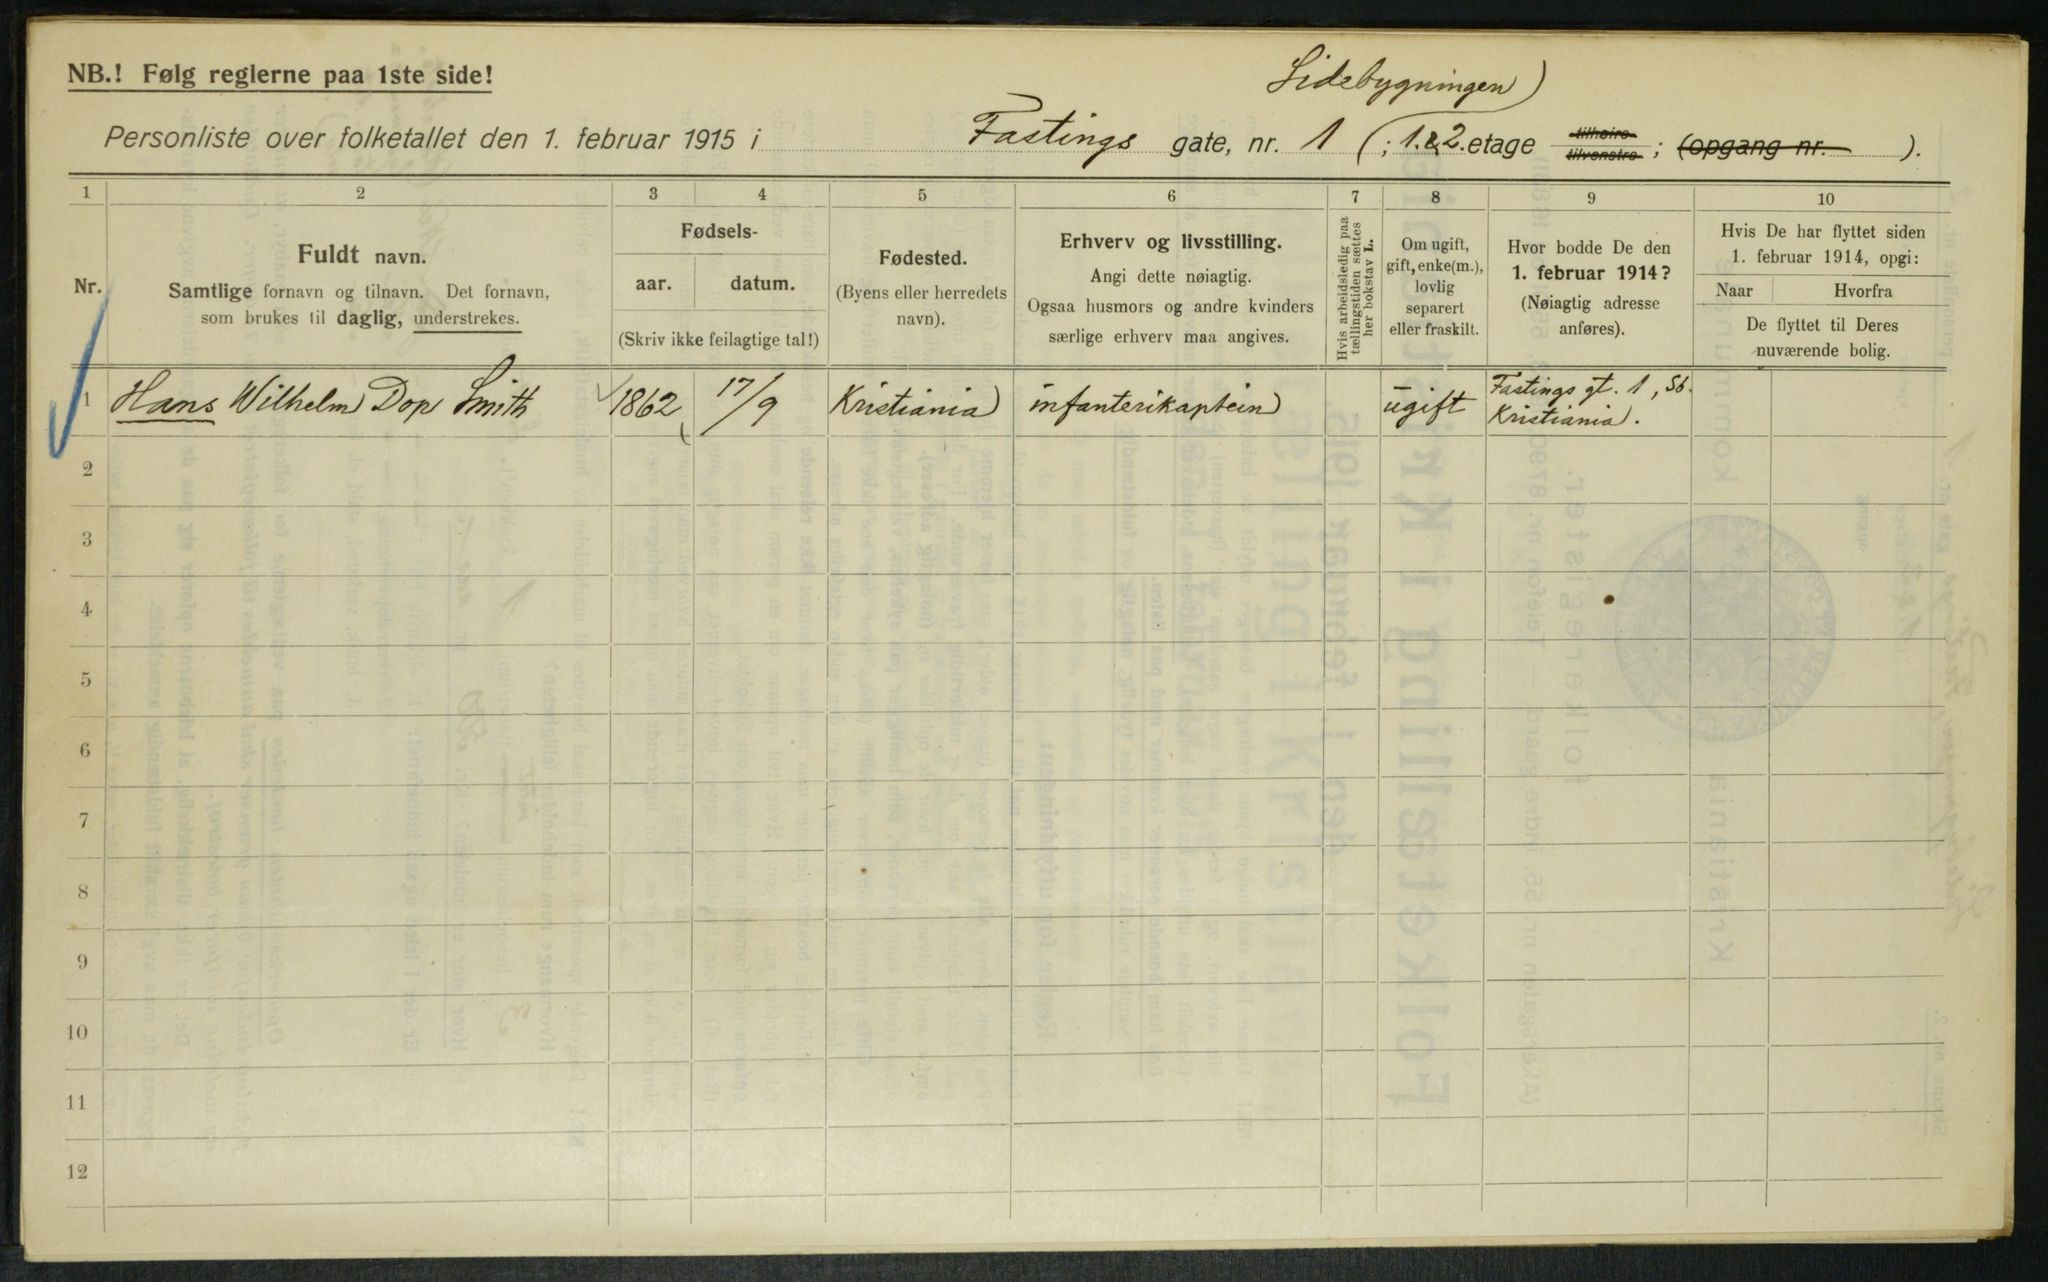 NB.! Følg reglerne paa 1ste side!
Sidebygningen)
Personliste over folketallet den 1. februar 1915 i Fastings gate, nr. 1 (; 1.&2. etage tilhøire tilvenstre ; (opgang nr. ).
1 2 3 4 5 6 7 8 9 10
Nr.
Fuldt navn.
Samtlige fornavn og tilnavn. Det fornavn,
som brukes til daglig, understrekes.
Fødsels-
aar. datum.
(Skriv ikke feilagtige tal!)
Fødested.
(Byens eller herredets
navn).
Erhverv og livsstilling.
Angi dette nøiagtig.
Ogsaa husmors og andre kvinders
særlige erhverv maa angives.
Hvis arbeidsledig paa
tællingstiden sættes
her bokstav L.
Om ugift,
gift, enke(m.),
lovlig
separert
eller fraskilt.
Hvor bodde De den
1. februar 1914?
(Nøiagtig adresse
anføres).
Hvis De har flyttet siden
1. februar 1914, opgi:
Naar Hvorfra
De flyttet til Deres
nuværende bolig.
1 Hans Wilhelm Dop Smith 1862 17/9 Kristiania infanterikaptein ugift Fastings gt. 1, Sb.
Kristiania.
2
3
4
5
6
7
8
9
10
11
12